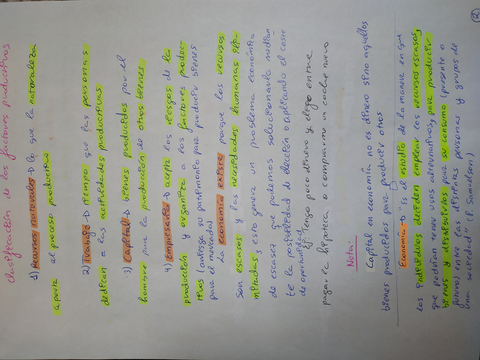 clasificación de los factores productivos
1) Recursos naturales → lo que la naturaleza
aporta al proceso productivo
2) Trabajo → tiempo que las personas
dedican a las actividades productivas
3) Capital → bienes producidos por el
hombre para la producción de otros bienes
4) Empresario → acepta los riesgos de la
producción y organiza a los factores produc-
tivos (arriesga su patrimonio para producir bienes
para el mercado)
La economía existe porque los recursos
son escasos y las necesidades humanas ili-
mitadas; esto genera un problema económico
de escasez que podemos solucionarlo median
te la posibilidad de elección o aplicando el coste
de oportunidad.
Ej: Tengo poco dinero y elijo entre
pagar la hipoteca o comprarme un coche nuevo
Nota:
Capital en economía no es dinero sino aquellos
bienes producidos para producir otros
Economía → Es el estudio de la manera en que
los individuos deciden emplear los recursos escasos
que podrían tener usos alternativos, para producir
bienes y distribuirlos para su consumo (presente o
futuro) entre las distintas personas y grupos de
una sociedad" (P. Samuelson)
2